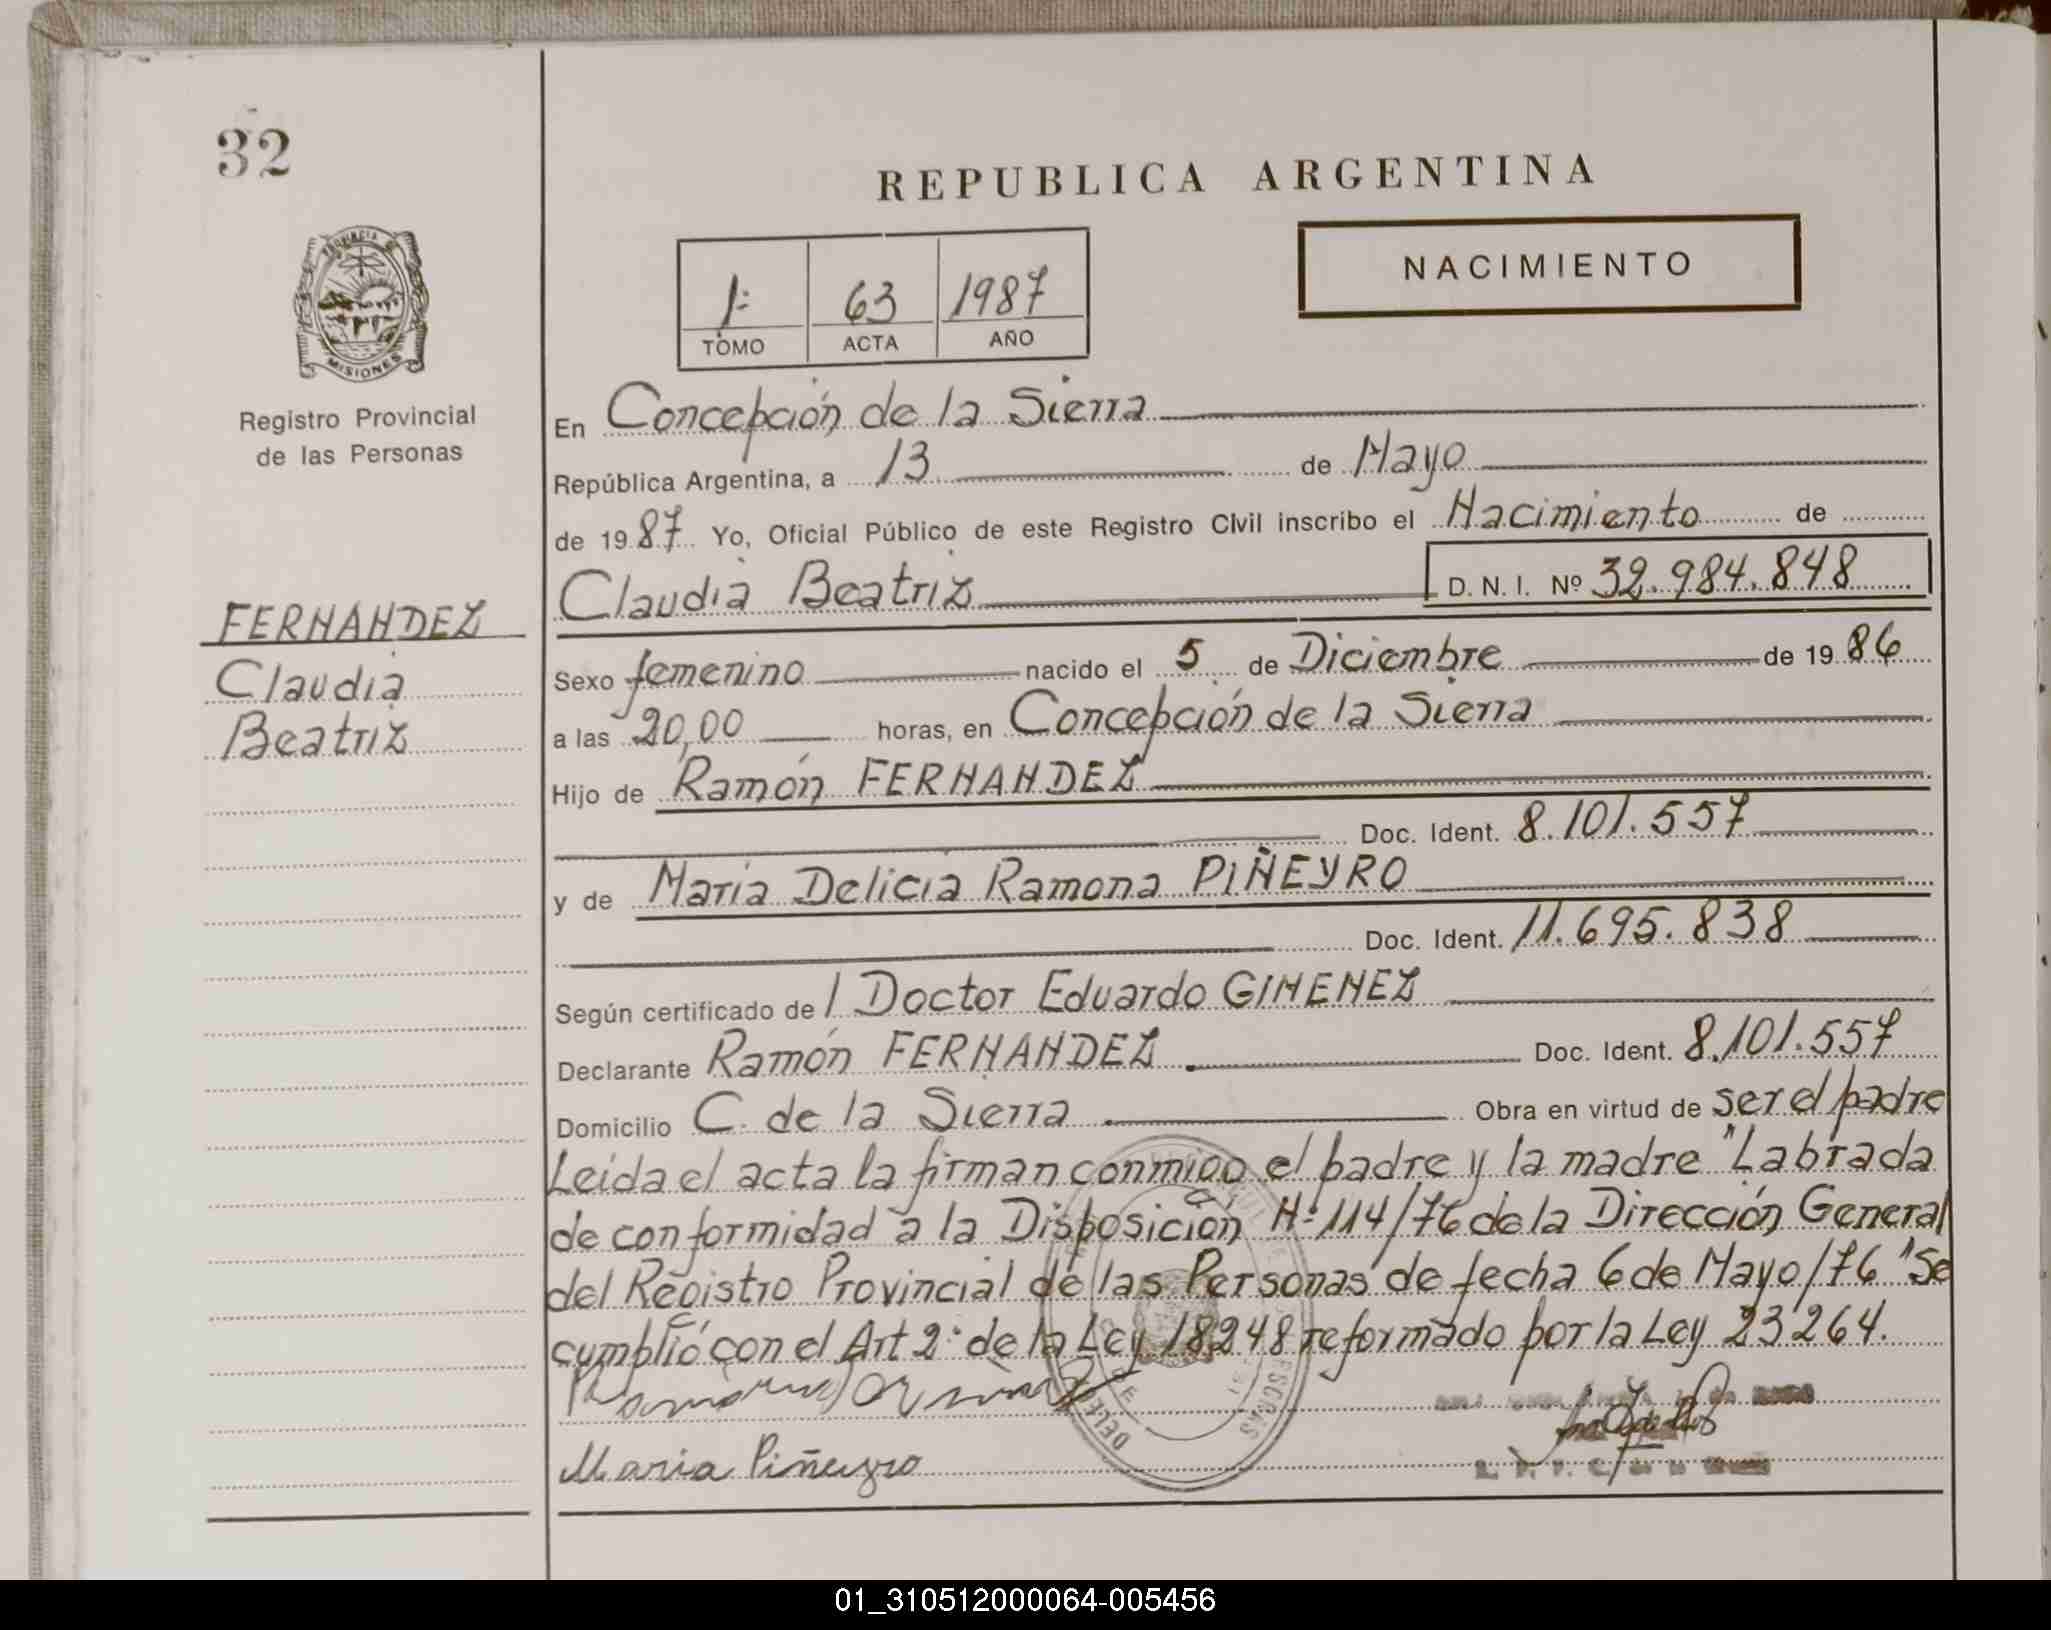 32
REPUBLICA ARGENTINA
PROVINCIA DE
MISIONES
Registro Provincial
de las Personas
1º 63 1987
TOMO ACTA AÑO
NACIMIENTO
En Concepción de la Sierra
República Argentina, a 13 de Mayo
de 1987 Yo, Oficial Público de este Registro Civil inscribo el Nacimiento de
Claudia Beatriz D. N. I. Nº 32.984.848
FERNANDEZ
Claudia
Beatriz
Sexo femenino nacido el 5 de Diciembre de 1986
a las 20,00 horas, en Concepción de la Sierra
Hijo de Ramón FERNANDEZ
Doc. Ident. 8.101.557
y de María Delicia Ramona PIÑEYRO
Doc. Ident. 11.695.838
Según certificado de l Doctor Eduardo GIMENEZ
Declarante Ramón FERNANDEZ Doc. Ident. 8.101.557
Domicilio C. de la Sierra Obra en virtud de ser el padre
Leída el acta la firman conmigo el padre y la madre "Labrada
de conformidad a la Disposición Nº 114/76 de la Dirección General
del Registro Provincial de las Personas de fecha 6 de Mayo/76 "Se
cumplió con el Art 2º de la Ley 18248 reformado por la Ley 23264.
Maria Piñeyro
01_310512000064-005456